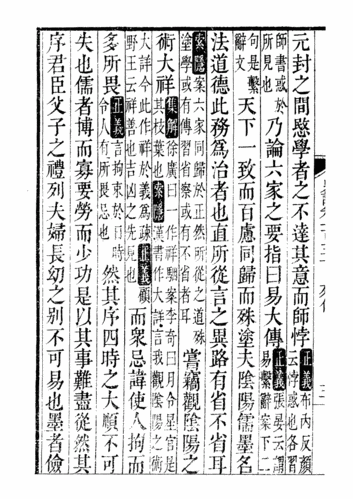 元封之間愍學者之不達其意而師悖正義布內反顏云悖惑也各習
師書惑於所見也乃論六家之要指曰易大傳正義張晏云謂易繫辭案下二
句是繫辭文天下一致而百慮同歸而殊塗夫陰陽儒墨名
法道德此務為治者也直所從言之異路有省不省耳
索隱案六家同歸於正然所從之道殊塗學或有傳習省察或有不省者耳嘗竊觀陰陽之
術大祥集解徐廣曰一作詳駰案李奇曰月令星官是其枝葉也索隱漢書作大詳言我觀陰陽之術
大詳今此作祥於義為疎正義顧野王云祥善也吉凶之先見也而眾忌諱使人拘而
多所畏正義言拘束於日時令人有所忌畏也然其序四時之大順不可
失也儒者博而寡要勞而少功是以其事難盡從然其
序君臣父子之禮列夫婦長幼之別不可易也墨者儉